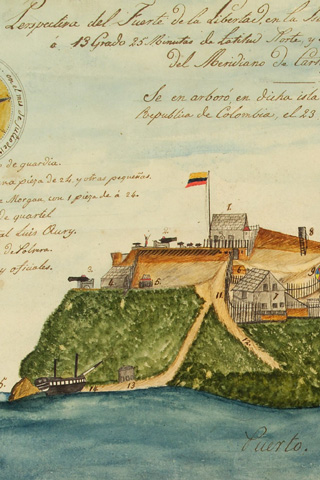 Perspectiva del Fuerte de la Libertad, en la
ó 13 Grado 25 Minutos de Latitud Norte, y
del Meridiano de
Se en arboró, en dicha isla
Republica de Colombia, el 23
de guardia.
una pieza de 24, y otras pequeñas
Morgan, con 1 pieza de à 24.
de quartel
Luis Aury.
de Polvora.
y oficiales.
1
8
2
4
5
7
9
11
12
13
14
5.
Puerto.